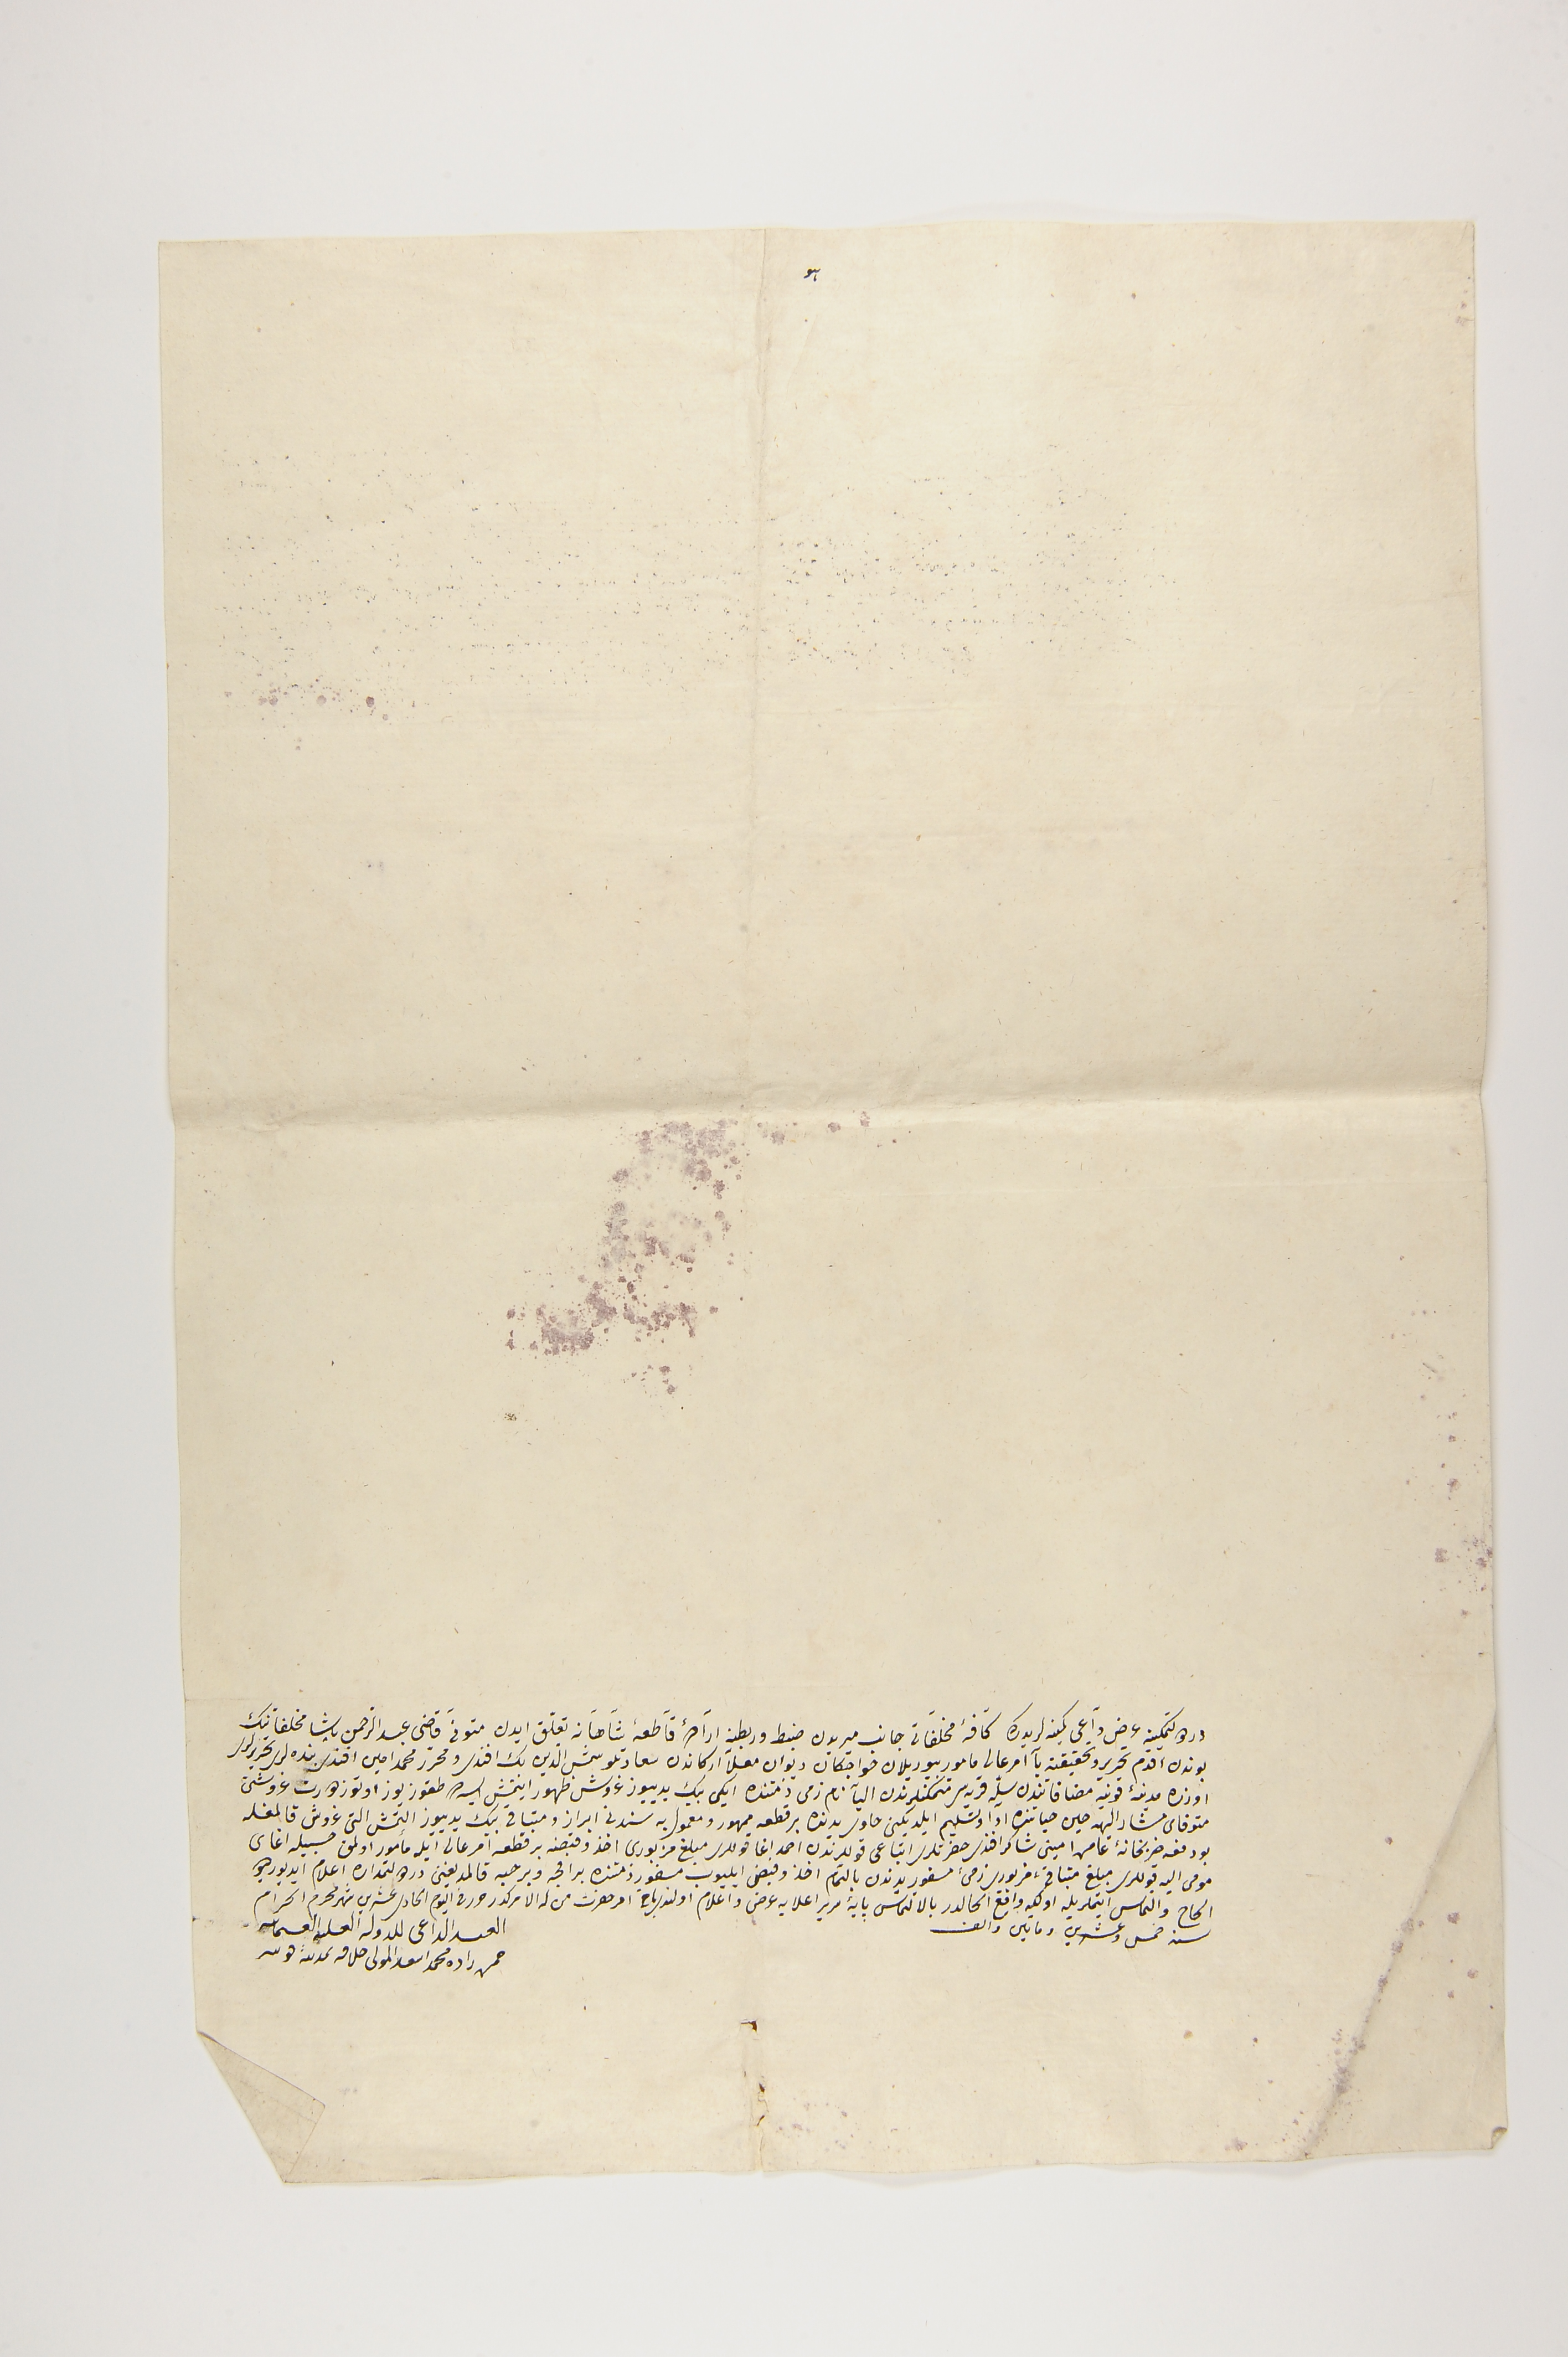 هو
در دولتمكينه عرض داعی كمينه لريدر كه كافهٔ مخلفاتی جانب ميريدن ضبط و ربطنه ارادهٔ قاطعهٔ شاهانه تعلق ايدن متوفی قاضی عبد الرحمن پاشا مخلفاتنك
بوندن اقدم تحرير و تحقيقنه با امر عالی مامور بيوريلان خواجكان ديوان معلا اركاندن سعادتلو شمس الدين بك افندی و محرر محمد امين افندی بنده لری تحريرلری
اوزره مدينهٔ قونيه مضافاتندن سيله قريه سی متمكنلرندن الياس نام ذمی ذمتنده ايكی بيك يديیوز غروش ظهور ايتمش ايسه ده طقوز يوز اوتوز درت غروشنی
متوفای مشار اليهه حين حياتنده ادا و تسليم ايلديكنی حاوی يدنده بر قطعه ممهور و معمول به سندنی ابراز و متباقی بيك يديیوز التمش التی غروش قالمغله
بو دفعه ضربخانهٔ عامره امينی شاكر افندی حضرتلری اتباعی قوللرندن احمد اغا قوللری مبلغ مزبوری اخذ و قبضنه بر قطعه امر عالی ايله مامور اولمق حسبيله اغای
مومی اليه قوللری مبلغ متباقیء مزبوری ذمیء مسفور يدندن بالتمام اخذ و قبض ايليوب مسفور ذمتنده بر اقچه و بر حبه قالمديغنی در دولتمداره اعلام ايديويرمك
الحاح و التماس ايتملريله اولكه واقع الحالدر بالالتماس پايهٔ سرير اعلايه عرض و اعلام اولندی باقی امر حضرت من له الامركدر حرر فی اليوم الحادی عشرين شهر محرم الحرام
سنه خمس و عشرين و مائتين و الف
العبد الداعی للدولة العلية العثمانيه
محمد اسعد المولی خلافه بمدينهٔ قونيه